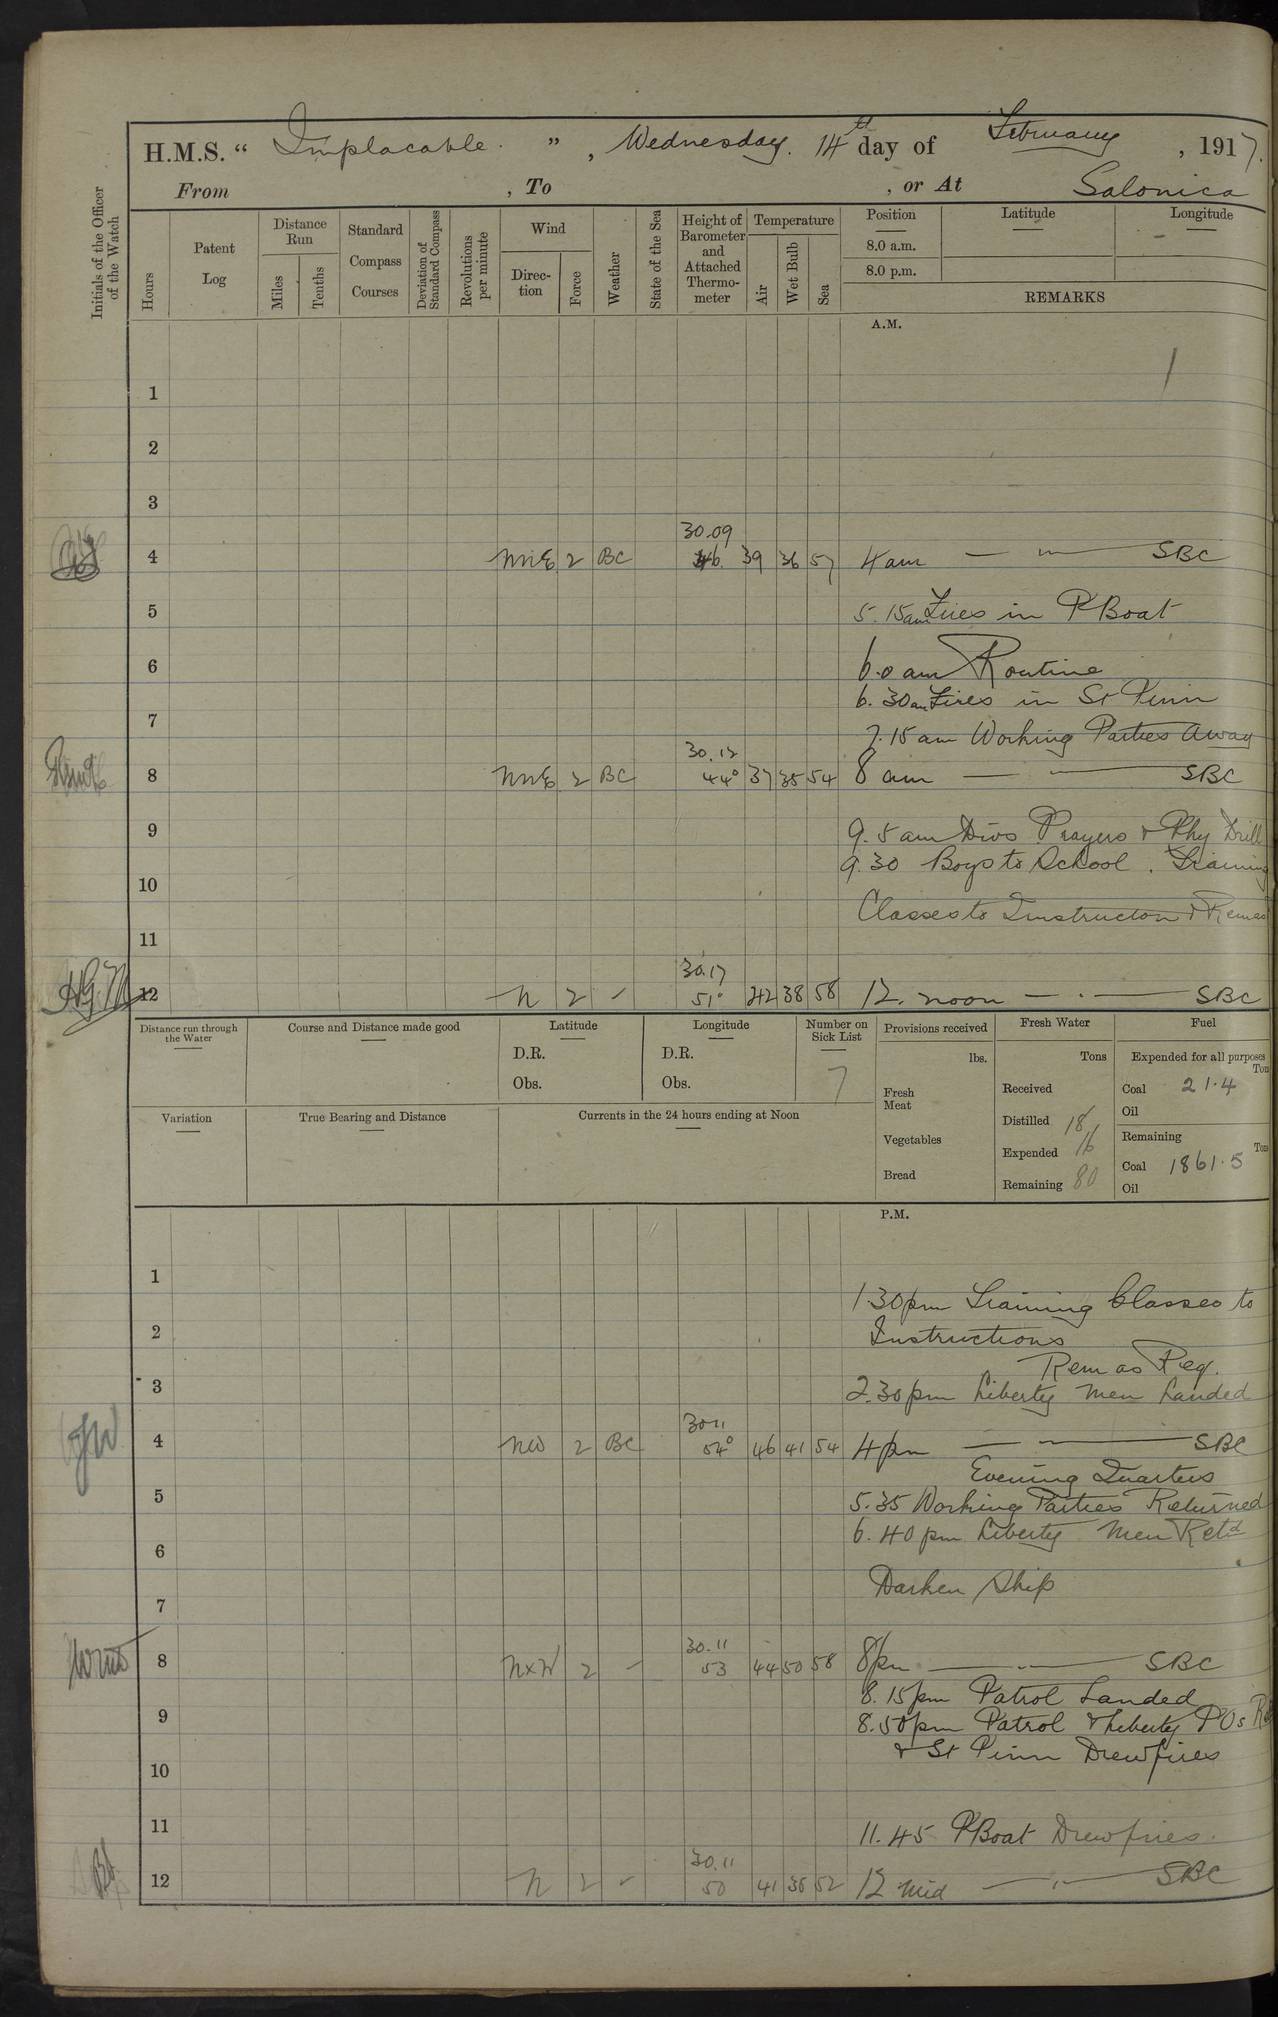 H.M.S. “ Implacable. ” , Wednesday. 14th day of February , 1917.
From , To , or At Salonica
Initials of the Officer of the Watch
Hours
Patent Log
Distance Run
Miles
Tenths
Standard Compass Courses
Deviation of Standard Compass
Revolutions per minute
Wind
Direc-tion
Force
Weather
State of the Sea
Height of Barometer and Attached Thermo-meter
Temperature
Air
Wet Bulb
Sea
Position
8.0 a.m.
8.0 p.m.
Latitude
Longitude
REMARKS
A.M.
1
2
3
30.09
4 NNE 2 BC 46. 39 36 57 4 am — " — SBC
5 5.15am Fires in P Boat
6 6.0 am Routine
6.30am Fires in St Pinn
7 7.15 am Working Parties Away
30.12
8 NNE 2 BC 44° 37 35 54 8 am — " — SBC
9 9.5 am Divs Prayers & Phy Drill
9.30 Boys to School. Training
10 Classes to Instruction &
11
30.17
H.G.M. 12 N 2 - 51° 42 38 58 12. noon — " — SBC
Distance run through the Water
Course and Distance made good
Latitude
D.R.
Obs.
Longitude
D.R.
Obs.
Number on Sick List
7
Provisions received
lbs.
Fresh Meat
Vegetables
Bread
Fresh Water
Tons
Received
Distilled 18
Expended 16
Remaining 80
Fuel
Expended for all purposes
Tons
Coal 21.4
Oil
Remaining
Tons
Coal 1861.5
Oil
Variation
True Bearing and Distance
Currents in the 24 hours ending at Noon
P.M.
1 1.30pm Training Classes to
2 Instructions
Rem as Req.
3 2.30pm Liberty Men Landed
30 11
4 NW 2 BC 54° 46 41 54 4 pm — " — SBC
Evening Quarters
5 5.35 Working Parties Returned
6.40 pm Liberty Men Retd
6
Darken Ship
7
30.11
8 NxW 2 - 53 44 50 58 8pm — " — SBC
8.15pm Patrol Landed
9 8.50pm Patrol & Liberty POs
& St Pinn Drew fires
10
11 11.45 P Boat Drew fires.
30.11
12 N 2 - 50 41 38 52 12 mid — " — SBC